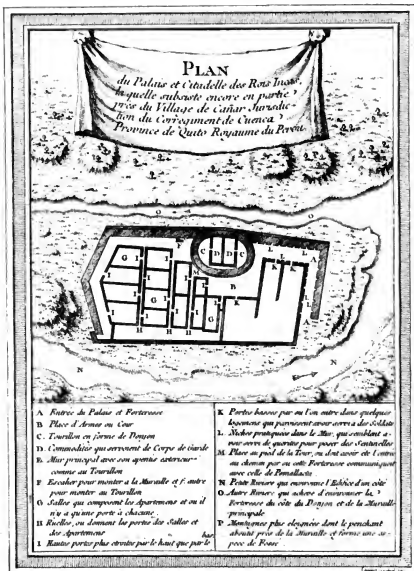 PLAN
du Palais et Citadelle des Rois Incas,
laquelle subsiste encore en partie
près du Village de Cañar Jurisdic-
tion du Corregiment de Cuenca
Province de Quito Royaume du Perou.
A Entrée du Palais et Forteresse
B Place d'Armes ou Cour
C Tourillon en forme de Donjon
D Commodités qui servoient de Corps de Garde
E Mur principal avec son apentis exterieur
comme au Tourillon
F Escalier pour monter à la Muraille et l'autre
pour monter au Tourillon
G Salles qui composent les Apartemens et ou il
n'y a qu'une porte à chacune
H Ruelles, ou donnent les portes des Salles et
des Apartemens
I Hautes portes plus etroites par le haut que par le
bas
K Portes basses par ou l'on entre dans quelques
logemens qui paroissent avoir servi à des Soldats
L Niches pratiquées dans le Mur, qui semblent a-
voir servi de guerites pour poser des Sentinelles
M Place au pied de la Tour, ou doit avoir eté l'entrée
au chemin par ou cette Forteresse communiquoit
avec celle de Pomallacta
N Petite Riviere qui environne l'Edifice d'un côté
O Autre Riviere qui acheve d'environner la
Forteresse du côté du Donjon et de la Muraille
principale
P Montagnes plus eloignées dont le penchant
aboutit près de la Muraille et forme une es-
pece de Fossé